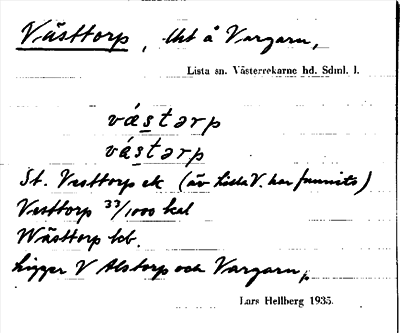 Västtorp, Uht å Vargarn,
Lista sn. Västerrekarne hd. Sdml. l.
vástərp
vástərp
St. Vesttorp ek (äv Lilla V. har funnits)
Vesttorp 33/1000 kal
Wästtorp kb.
Ligger V Alstorp och Vargarn,
Lars Hellberg 1935.